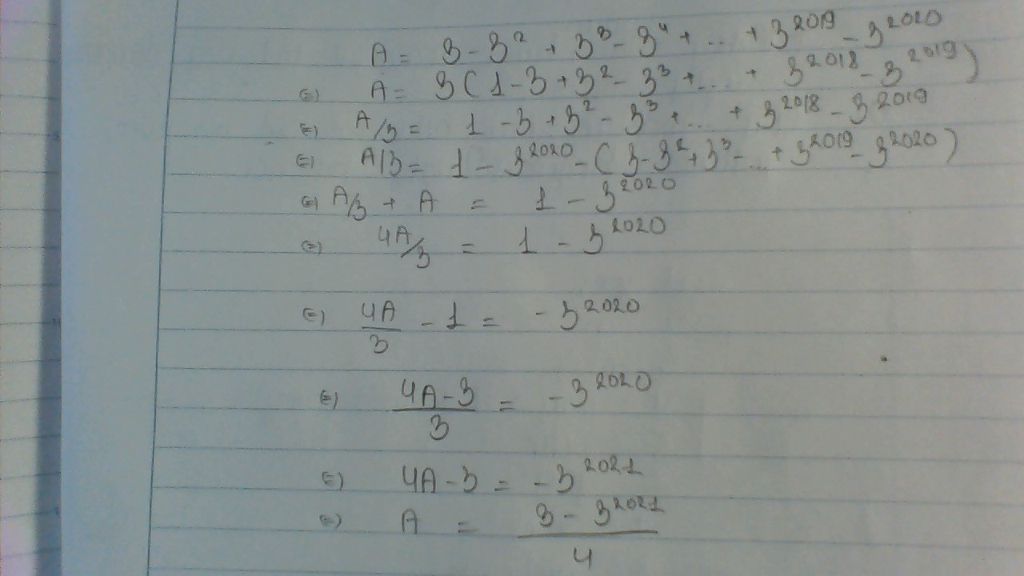 A = 3 - 3² + 3³ - 3⁴ + ... + 3²⁰¹⁹ - 3²⁰²⁰
(=) A = 3(1 - 3 + 3² - 3³ + ... + 3²⁰¹⁸ - 3²⁰¹⁹)
(=) A/3 = 1 - 3 + 3² - 3³ + ... + 3²⁰¹⁸ - 3²⁰¹⁹
(=) A/3 = 1 - 3²⁰²⁰ - (3 - 3² + 3³ - ... + 3²⁰¹⁹ - 3²⁰²⁰)
(=) A/3 + A = 1 - 3²⁰²⁰
(=) 4A/3 = 1 - 3²⁰²⁰
(=) 4A/3 - 1 = - 3²⁰²⁰
(=) (4A - 3)/3 = - 3²⁰²⁰
(=) 4A - 3 = - 3²⁰²¹
(=) A = (3 - 3²⁰²¹)/4